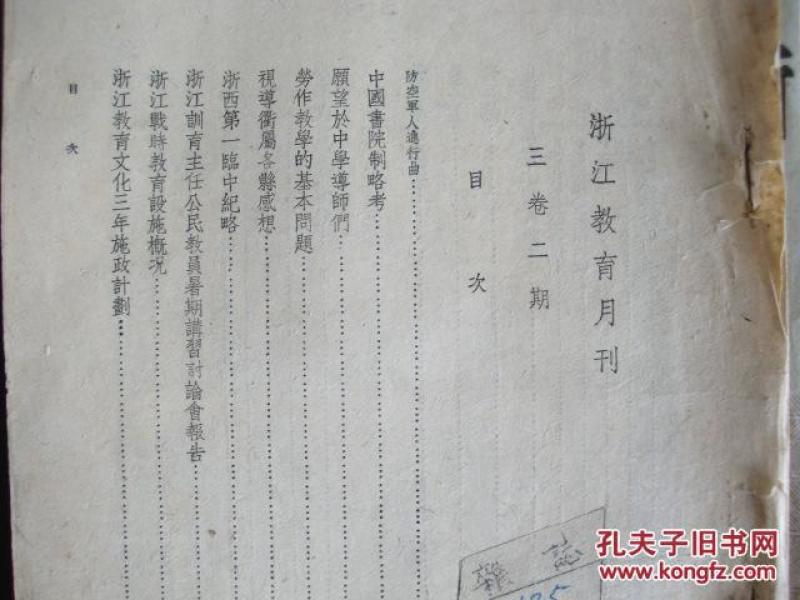 浙江教育月刊
三卷二期
目次
防空軍人進行曲
中國書院制略考
願望於中學導師們
勞作教學的基本問題
視導衢屬各縣感想
浙西第一臨中紀略
浙江訓育主任公民教員暑期講習討論會報告
浙江戰時教育設施概況
浙江教育文化三年施政計劃
目次
雜誌
孔夫子旧书网
www.kongfz.com